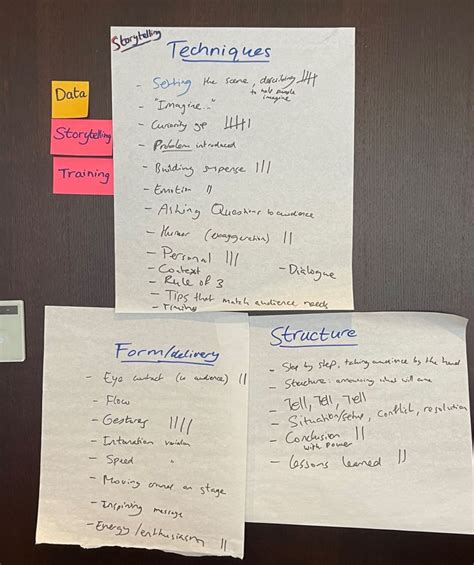 Data
Storytelling
Training
Storytelling
Techniques
- Setting the scene, describing
to make people
imagine
- "Imagine..."
- Curiosity gap
- Problem introduced
- Building suspense |||
- Emotion ||
- Asking Questions to audience
- Humor (exaggeration) ||
- Personal |||
- Context
- Dialogue
- Rule of 3
- Tips that match audience needs
- Timing
Form/delivery
- Eye contact (to audience) ||
- Flow
- Gestures ||||
- Intonation variation
- Speed "
- Moving around on stage
- Inspiring message
- Energy/enthusiasm ||
Structure
- Step by step, taking audience by the hand
- Structure: announcing what will come
- Tell, Tell, Tell
- Situation/setup, conflict, resolution
- Conclusion ||
with power
- Lessons learned ||